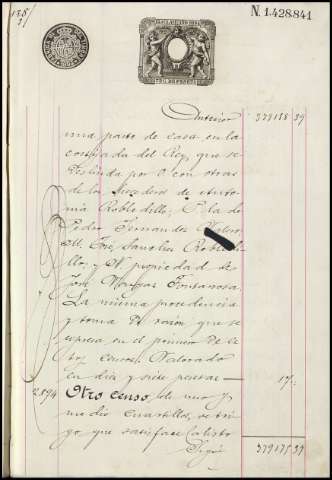 N. 1.428.841
Anterior 379158 39
una parte de casa en la
del Rey, que se
deslinda por O. con otras
de los herederos de Anto-
nia Robledillo; P. la de
Pedro Fernandez
M. José Sanchez Robledi-
llo; y N. propiedad de
José Fontanosa.
La misma procedencia
y toma de razón que se
espresa en el primero de es-
tos censos. Valorado
en diez y siete pesetas — 17..
2894 Otro censo, de uno y
medio cuartillos, de tri-
go que satisface Calisto
Sigue 379175 39